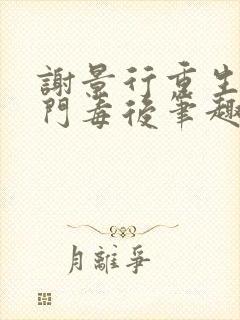 謝景行重生
門毒後筆趣
月離爭